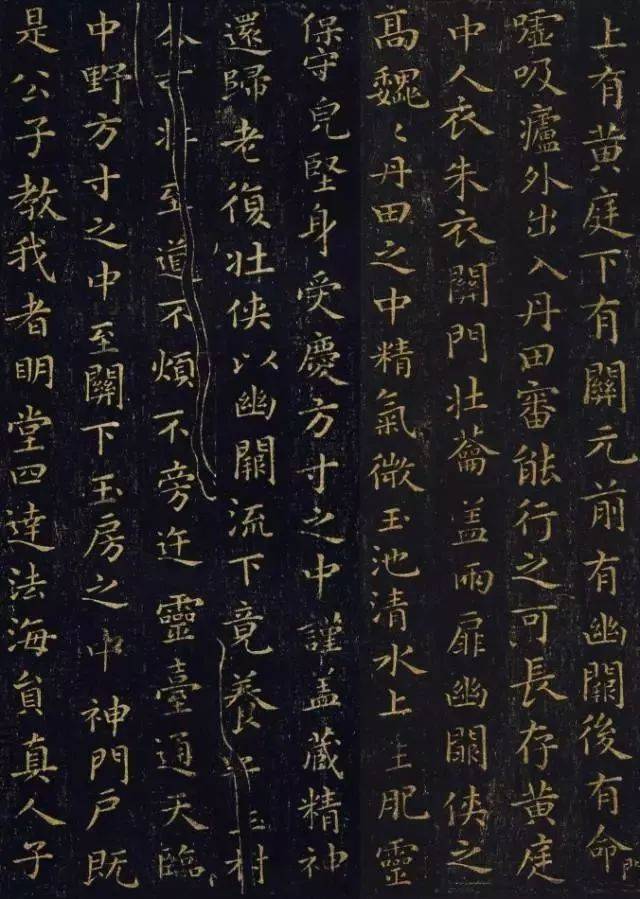 上有黄庭下有關元前有幽闕後有命門
嘘吸廬外出入丹田審能行之可長存黄庭
中人衣朱衣關門壮蘥盖兩扉幽闕侠之
高巍〻丹田之中精氣微玉池清水上生肥靈
保守皃堅身受慶方寸之中謹盖藏精神
還歸老復壮侠以幽闕流下竟養子玉樹
至道不煩不旁迕靈臺通天臨
中野方寸之中至關下玉房之中神門戶既
是公子教我者明堂四達法海員真人子